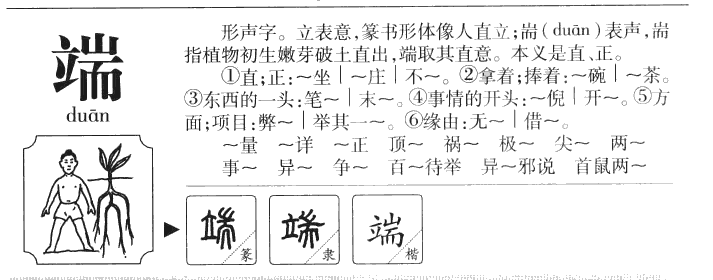 端
duān
形声字。立表意,篆书形体像人直立;耑(duān)表声,耑
指植物初生嫩芽破土直出,端取其直意。本义是直、正。
①直;正:～坐｜～庄｜不～。②拿着;捧着:～碗｜～茶。
③东西的一头:笔～｜末～。④事情的开头:～倪｜开～。⑤方
面;项目:弊～｜举其一～。⑥缘由:无～｜借～。
～量 ～详 ～正 顶～ 祸～ 极～ 尖～ 两～
事～ 异～ 争～ 百～待举 异～邪说 首鼠两～
端 篆
端 隶
端 楷